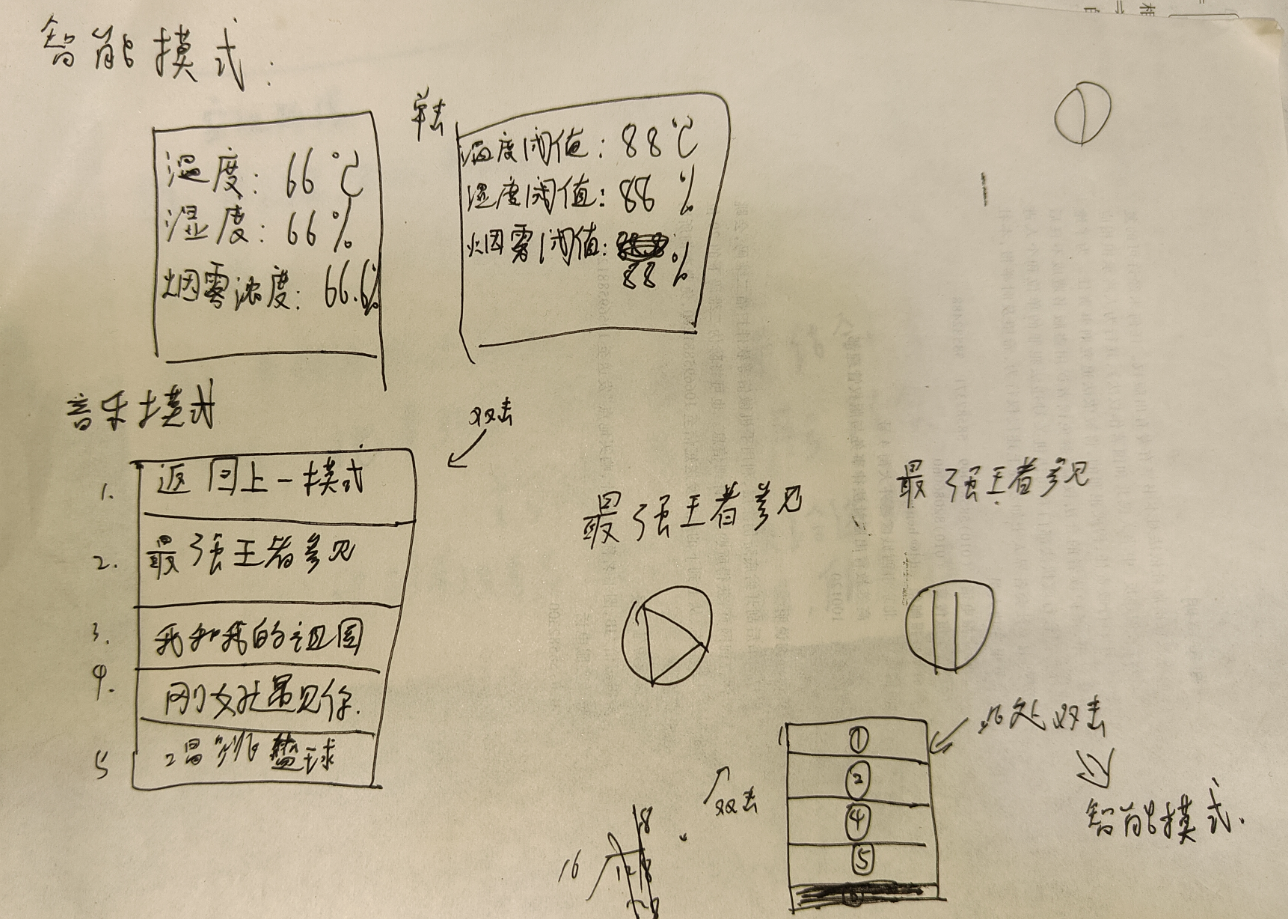 智能模式:
单击
温度: 66℃
湿度: 66%
烟雾浓度: 66.6%
温度阈值: 88℃
湿度阈值: 88%
烟雾阈值:
88%
音乐模式
双击
1. 返回上一模式
2. 最强王者参见
3. 我和我的祖国
4. 刚好遇见你.
5 唱跳 篮球
最强王者参见
最强王者参见
此处双击
智能模式.
双击
①
②
④
⑤
16
18